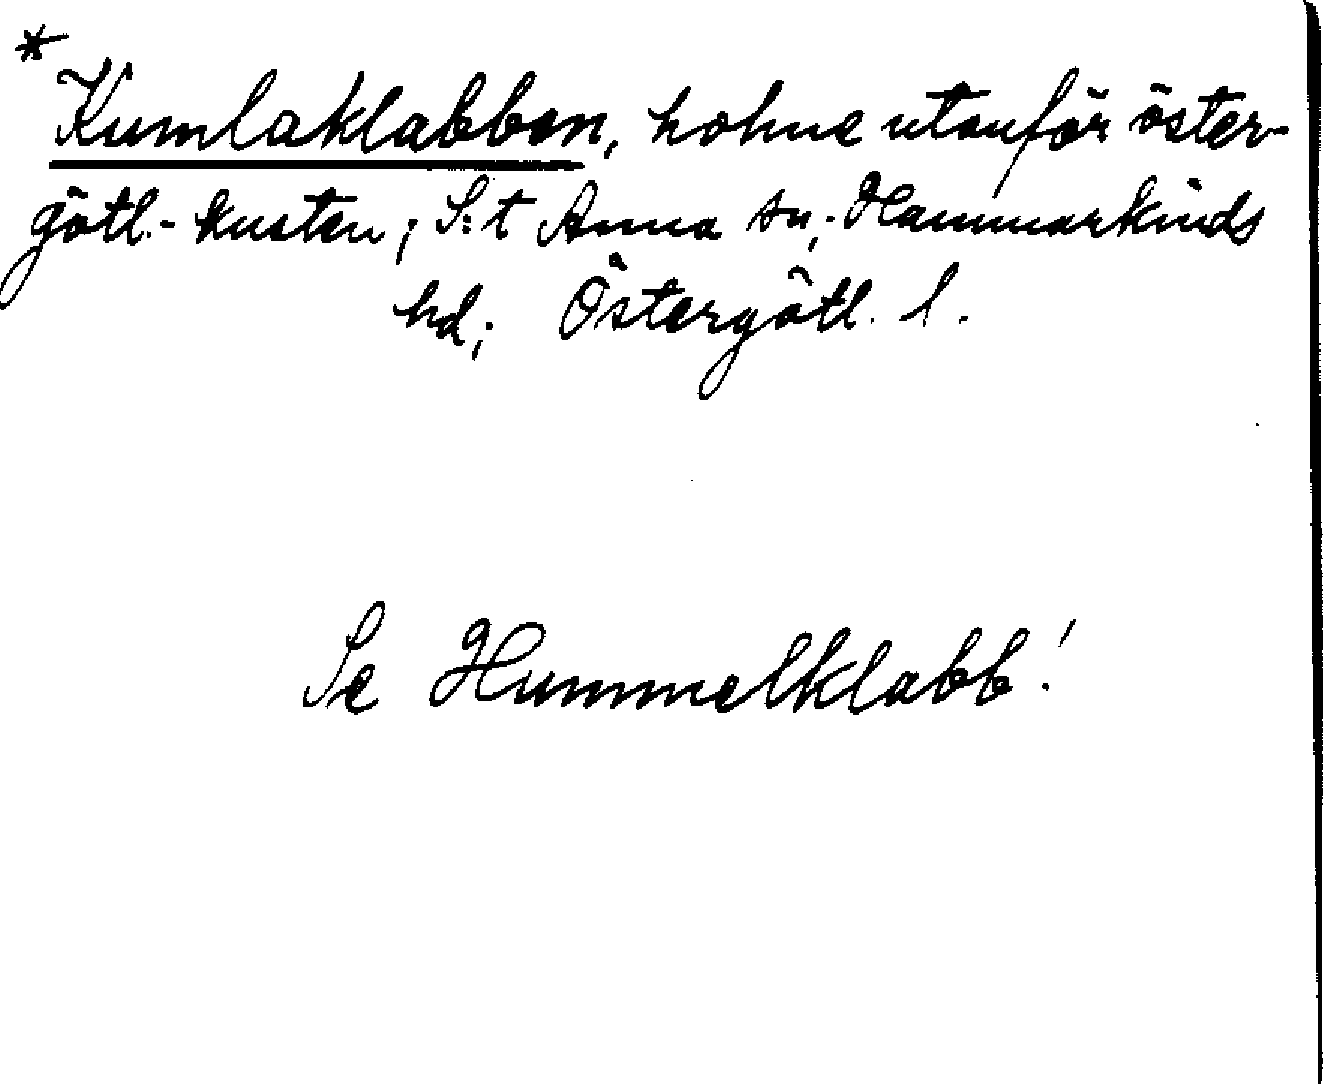 * Kumlaklabben, holme utanför öster-
götl.-kusten; S:t Anna sn, Hammarkinds
hd; Östergötl. l.
Se Hummelklabb!